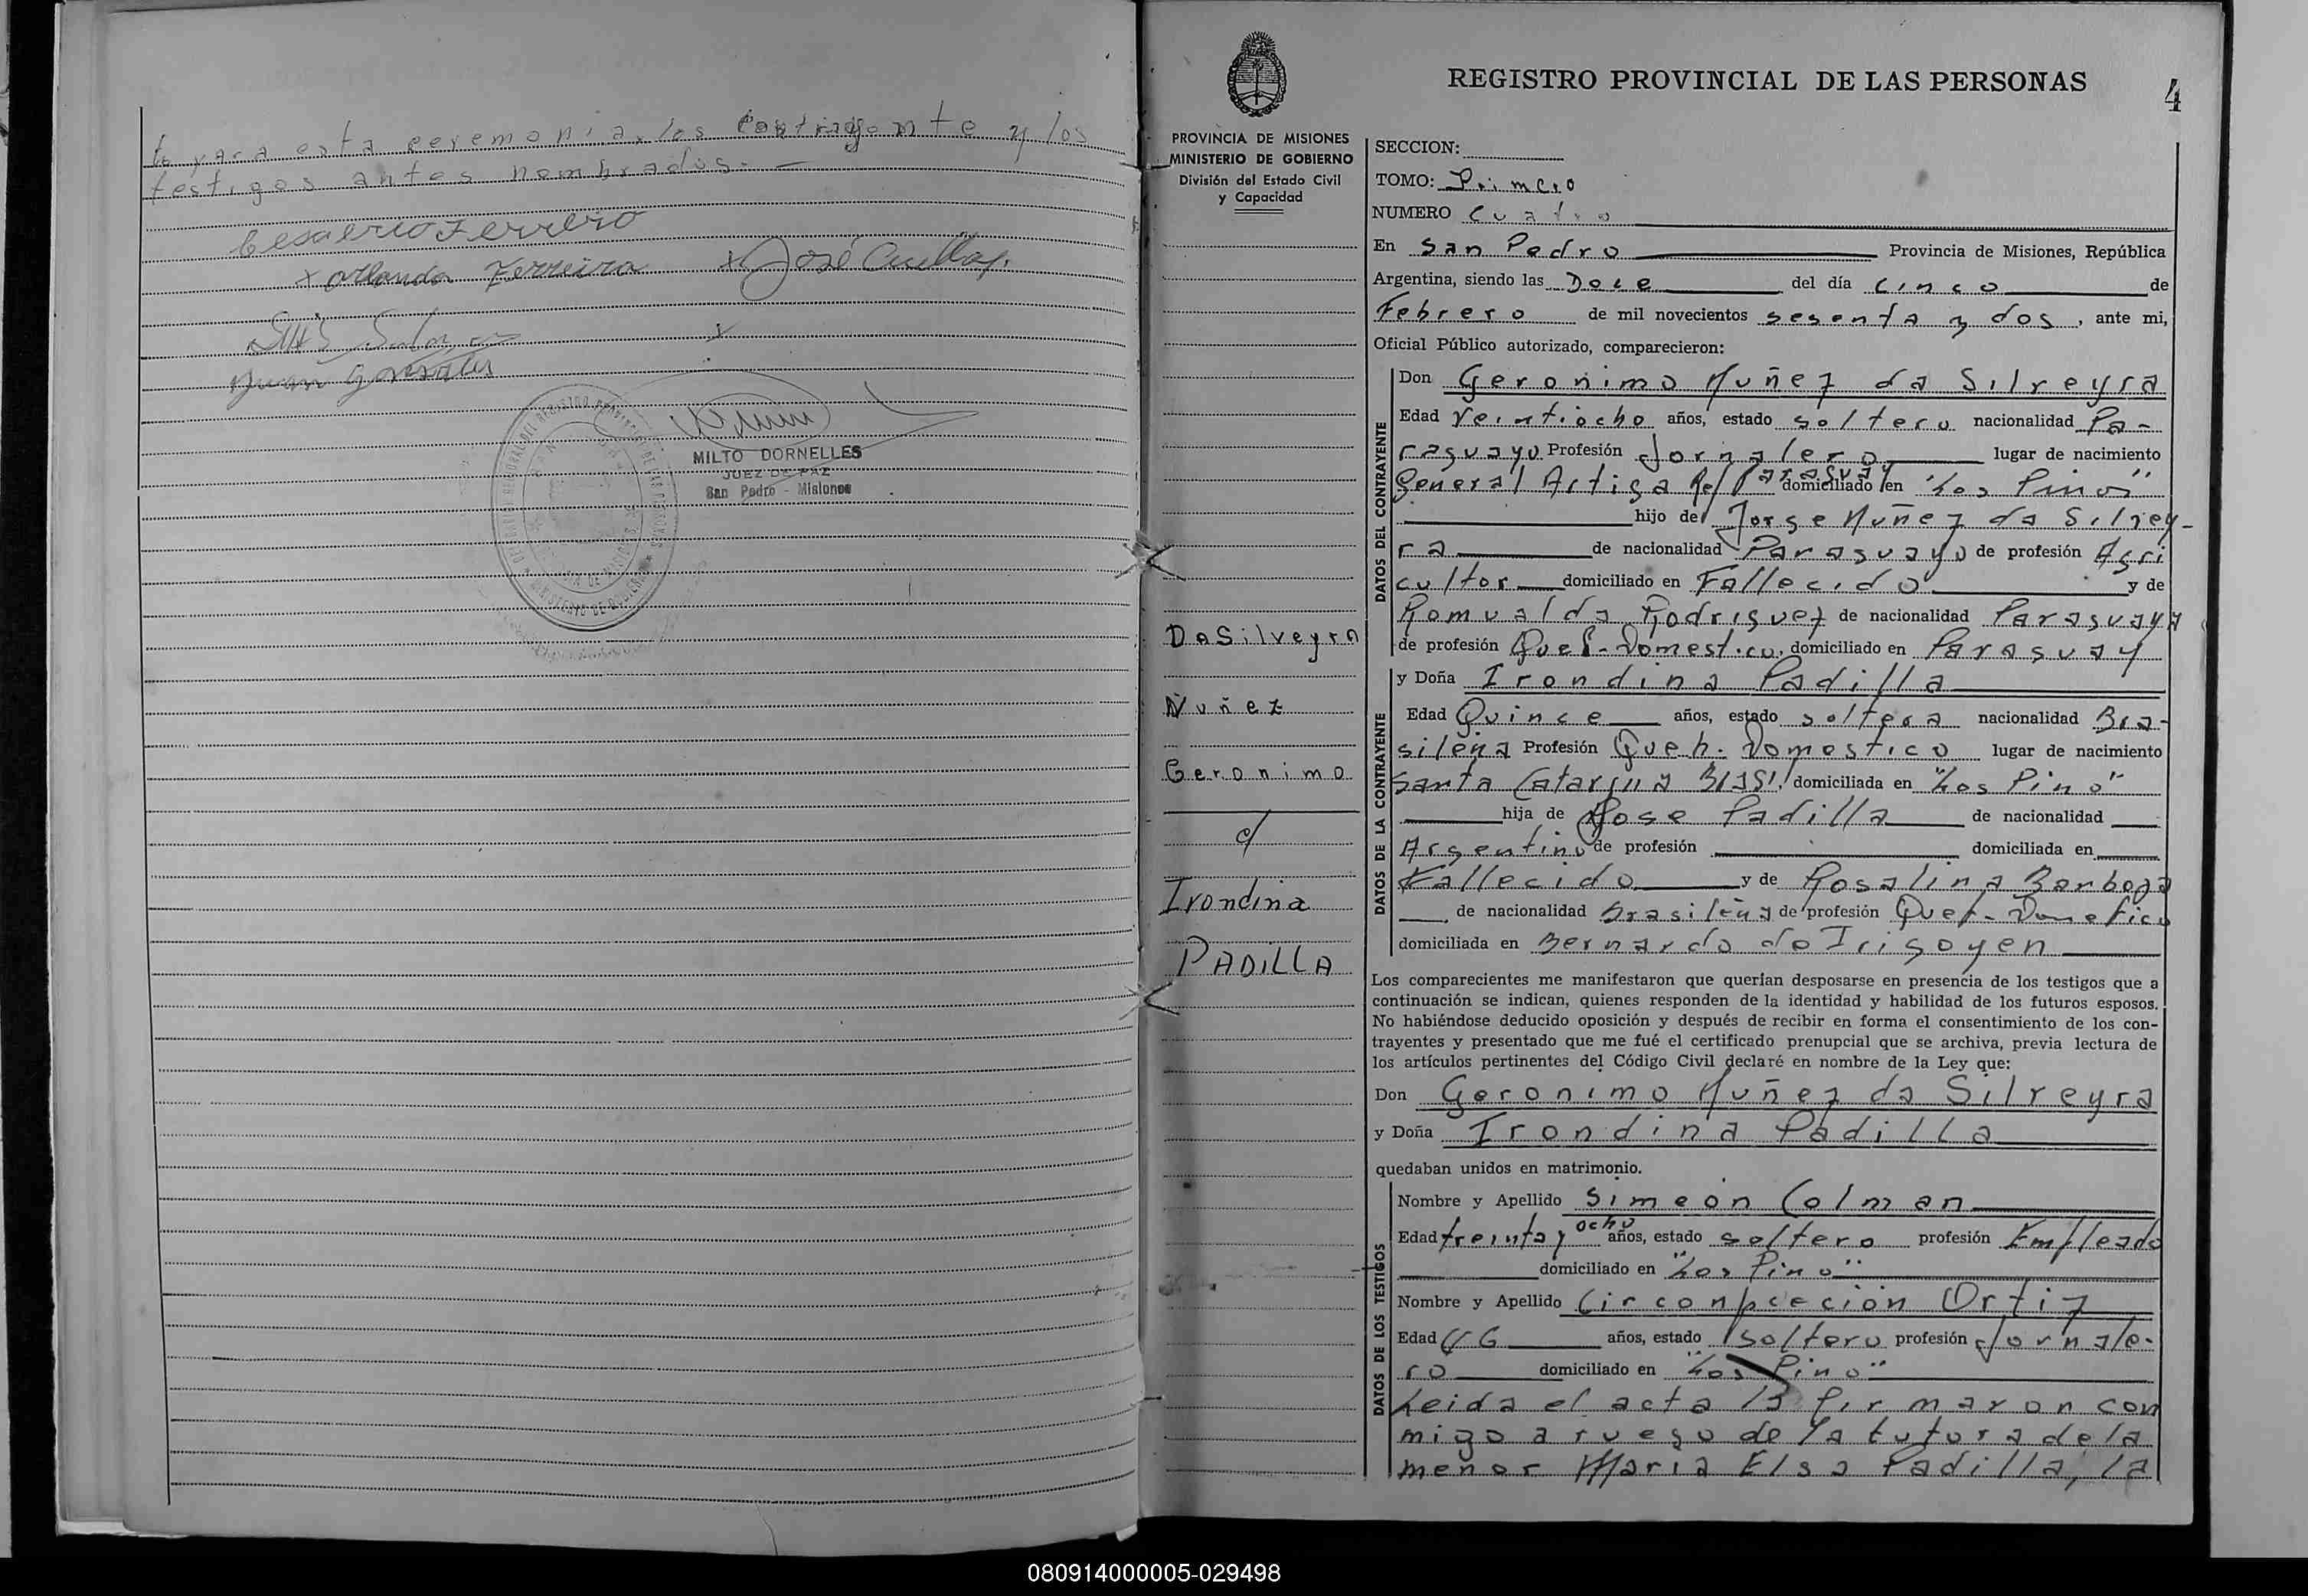 para esta ceremonia, los contrayente y los
testigos antes nombrados.-
Cesaerio Ferreiro
x Orlando Ferreira x José Cuellar
Luis
x
Juan González
MILTO DORNELLES
JUEZ DE PAZ
San Pedro - Misiones
REGISTRO PROVINCIAL DE LAS PERSONAS
4
PROVINCIA DE MISIONES
MINISTERIO DE GOBIERNO
División del Estado Civil
y Capacidad
DaSilveyra
Nuñez
Geronimo
c/
Irondina
PADILLA
SECCION:
TOMO: Primero
NUMERO Cuatro
En San Pedro Provincia de Misiones, República
Argentina, siendo las Doce del día cinco de
Febrero de mil novecientos sesenta y dos, ante mi,
Oficial Público autorizado, comparecieron:
DATOS DEL CONTRAYENTE
Don Geronimo Nuñez da Silveyra
Edad Veintiocho años, estado soltero nacionalidad Pa-
raguayo Profesión Jornalero lugar de nacimiento
General Artiga Rep Paraguay domiciliado en "Los Pinos"
hijo de Jorge Nuñez da Silvey-
ra de nacionalidad Paraguayo de profesión Agri
cultor domiciliado en Fallecido y de
Romualda Rodriguez de nacionalidad Paraguaya
de profesión Queh-Domestico, domiciliado en Paraguay
DATOS DE LA CONTRAYENTE
y Doña Irondina Padilla
Edad Quince años, estado soltera nacionalidad Bra-
sileña Profesión Queh. Domestico lugar de nacimiento
Santa Catarina Brasil domiciliada en "Los Pino"
hija de Jose Padilla de nacionalidad
Argentino de profesión domiciliada en
Fallecido y de Rosalina Barboza
de nacionalidad brasileña de profesión Queh-
domiciliada en Bernardo de Irigoyen
Los comparecientes me manifestaron que querían desposarse en presencia de los testigos que a
continuación se indican, quienes responden de la identidad y habilidad de los futuros esposos.
No habiéndose deducido oposición y después de recibir en forma el consentimiento de los con-
trayentes y presentado que me fué el certificado prenupcial que se archiva, previa lectura de
los artículos pertinentes del Código Civil declaré en nombre de la Ley que:
Don Geronimo Nuñez da Silveyra
y Doña Irondina Padilla
quedaban unidos en matrimonio.
DATOS DE LOS TESTIGOS
Nombre y Apellido Simeón Colman
Edad treinta y ocho años, estado soltero profesión Empleado
domiciliado en "Los Pino"
Nombre y Apellido Circonpceción Ortiz
Edad 46 años, estado soltero profesión Jornale-
ro domiciliado en "Los Pino"
Leida el acta la firmaron con
migo a ruego de la tutora de la
menor Maria Elsa Padilla, la
080914000005-029498